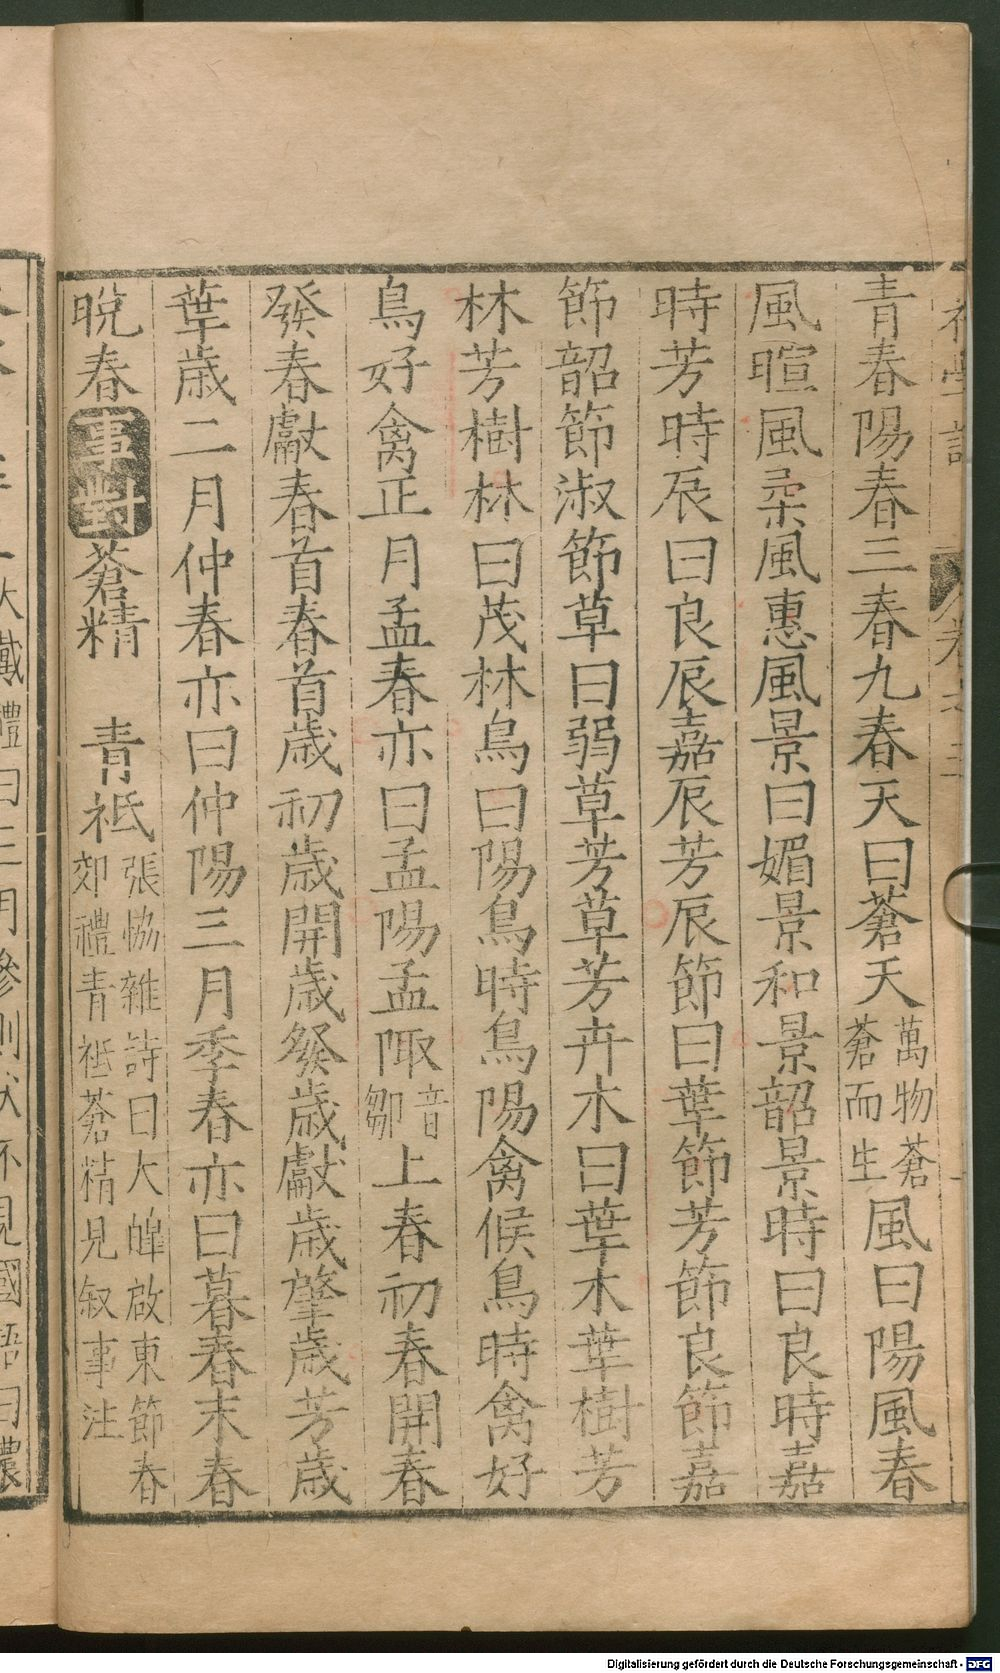 青春陽春三春九春天曰蒼天萬物蒼蒼而生風曰陽風春
風暄風柔風惠風景曰媚景和景韶景時曰良時嘉
時芳時辰曰良辰嘉辰芳辰節曰華節芳節良節嘉
節韶節淑節草曰弱草芳草芳卉木曰華木華樹芳
林芳樹林曰茂林鳥曰陽鳥時鳥陽禽候鳥時禽好
鳥好禽正月孟春亦曰孟陽孟陬音鄒上春初春開春
發春獻春首春首歲初歲開歲發歲獻歲肇歲芳歲
華歲二月仲春亦曰仲陽三月季春亦曰暮春末春
晩春事對蒼精 青祗張協雜詩曰大皞啟東節春郊禮青祗蒼精見叙事注
大戴禮曰三月參則伏不見國語曰農
Digitalisierung gefördert durch die Deutsche Forschungsgemeinschaft - DFG